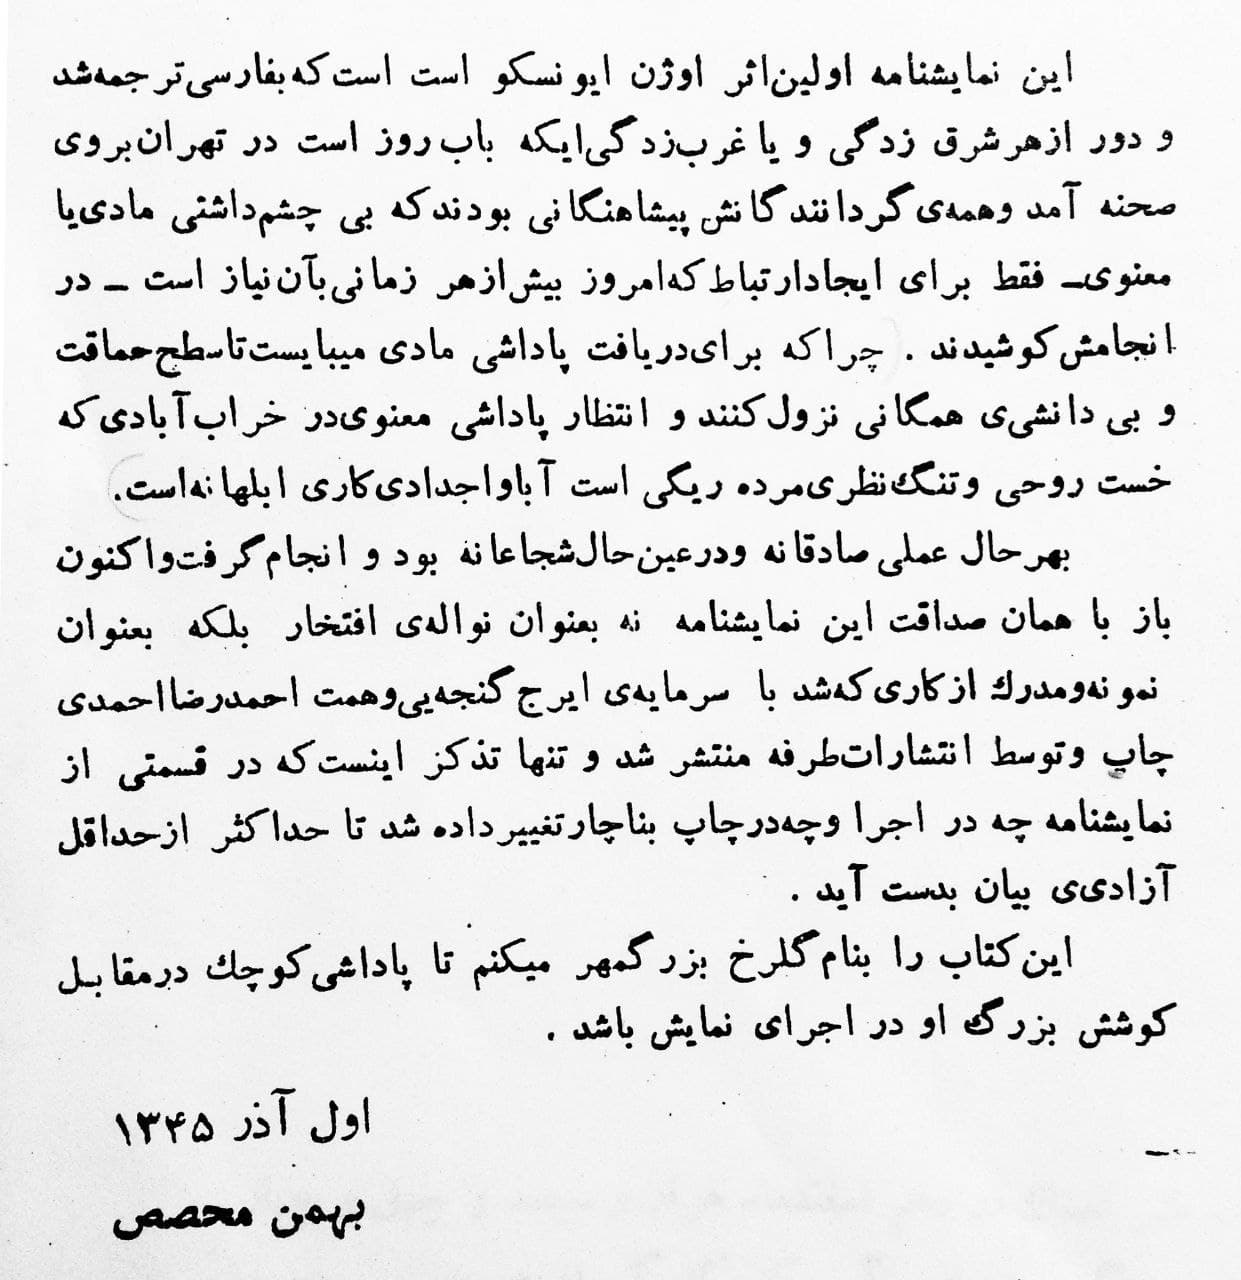 این نمایشنامه اولین اثر اوژن ایونسکو است است که بفارسی ترجمه شد
و دور از هر شرق زدگی و یا غرب‌زدگی‌ایکه باب روز است در تهران بروی
صحنه آمد و همه‌ی گردانندگانش پیشاهنگانی بودند که بی چشم‌داشتی مادی یا
معنوی ـ فقط برای ایجاد ارتباط که امروز بیش از هر زمانی بآن نیاز است ـ در
انجامش کوشیدند . چرا که برای دریافت پاداشی مادی میبایست تا سطح حماقت
و بی دانشی‌ی همگانی نزول کنند و انتظار پاداشی معنوی در خراب‌آبادی که
خست روحی و تنگ‌نظری مرده ریگی است آبا و اجدادی کاری ابلهانه است.
بهر حال عملی صادقانه و در عین حال شجاعانه بود و انجام گرفت و اکنون
باز با همان صداقت این نمایشنامه نه بعنوان نواله‌ی افتخار بلکه بعنوان
نمونه و مدرك از کاری که شد با سرمایه‌ی ایرج گنجه‌یی و همت احمدرضا احمدی
چاپ و توسط انتشارات طرفه منتشر شد و تنها تذکز اینست که در قسمتی از
نمایشنامه چه در اجرا و چه در چاپ بناچار تغییر داده شد تا حداکثر از حداقل
آزادی‌ی بیان بدست آید .
این کتاب را بنام گلرخ بزرگمهر میکنم تا پاداشی کوچك در مقابل
کوشش بزرگ او در اجرای نمایش باشد .
اول آذر ۱۳۴۵
بهمن محصص